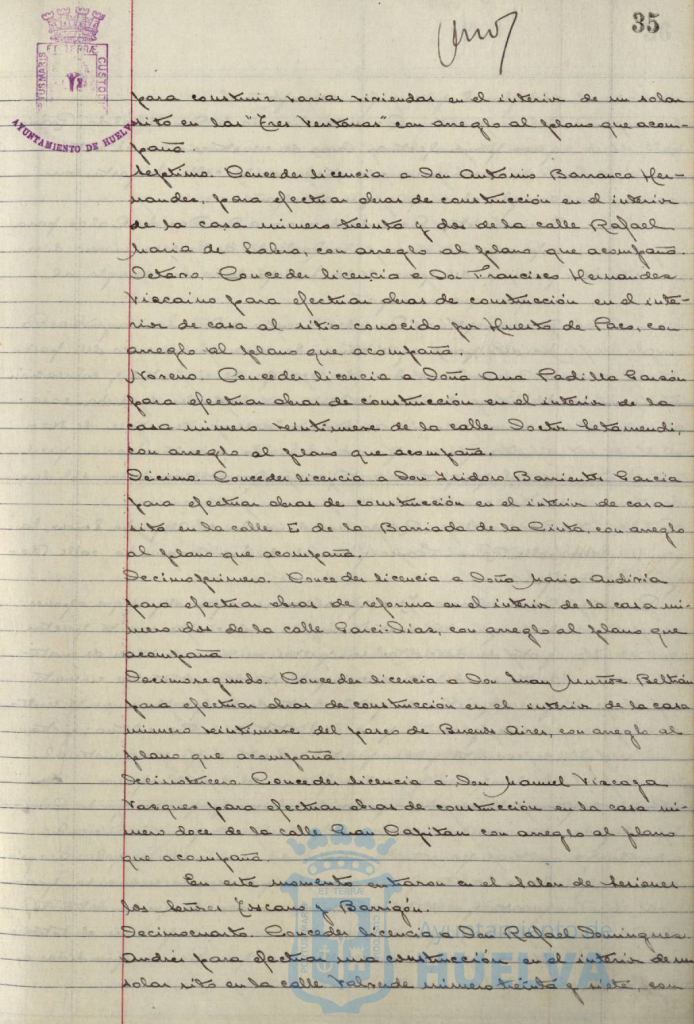 35
PORTUS MARIS ET TERRÆ CUSTODIA
AYUNTAMIENTO DE HUELVA
para construir varias viviendas en el interior de un solar
sito en las "Tres Ventanas" con arreglo al plano que acom-
paña.
Septimo. Conceder licencia a Don Antonio Barranca Her-
nandez, para efectuar obras de construcción en el interior
de la casa número treinta y dos de la calle Rafael
Maria de Labra, con arreglo al plano que acompaña.
Octavo. Conceder licencia a Don Francisco Hernandez
Vizcaino para efectuar obras de construcción en el inte-
rior de casa al sitio conocido por Huerto de Paco, con
arreglo al plano que acompaña.
Noveno. Conceder licencia a Doña Ana Padilla Garzón
para efectuar obras de construcción en el interior de la
casa número veintinueve de la calle Doctor Letamendi,
con arreglo al plano que acompaña.
Décimo. Conceder licencia a Don Isidoro Barrientos Garcia
para efectuar obras de construcción en el interior de casa
sito en la calle E de la Barriada de la Cinta, con arreglo
al plano que acompaña.
Decimoprimero. Conceder licencia a Doña Maria
para efectuar obras de reforma en el interior de la casa nú-
mero dos de la calle Garci-Diaz, con arreglo al plano que
acompaña.
Decimosegundo. Conceder licencia a Don Juan Muñoz Beltrán
para efectuar obras de construcción en el interior de la casa
número veintinueve del paseo de Buenos Aires, con arreglo al
plano que acompaña.
Decimotercero. Conceder licencia a Don Manuel Vizcaya
Vazques para efectuar obras de construcción en la casa nú-
mero doce de la calle Gran Capitan con arreglo al plano
que acompaña.
En este momento entraron en el Salon de Sesiones
los Señores Toscano y Barrigón.
Decimocuarto. Conceder licencia a Don Rafael Dominguez
para efectuar una construcción en el interior de un
solar sito en la calle Valverde número treinta y siete, con
Ayuntamiento de
HUELVA